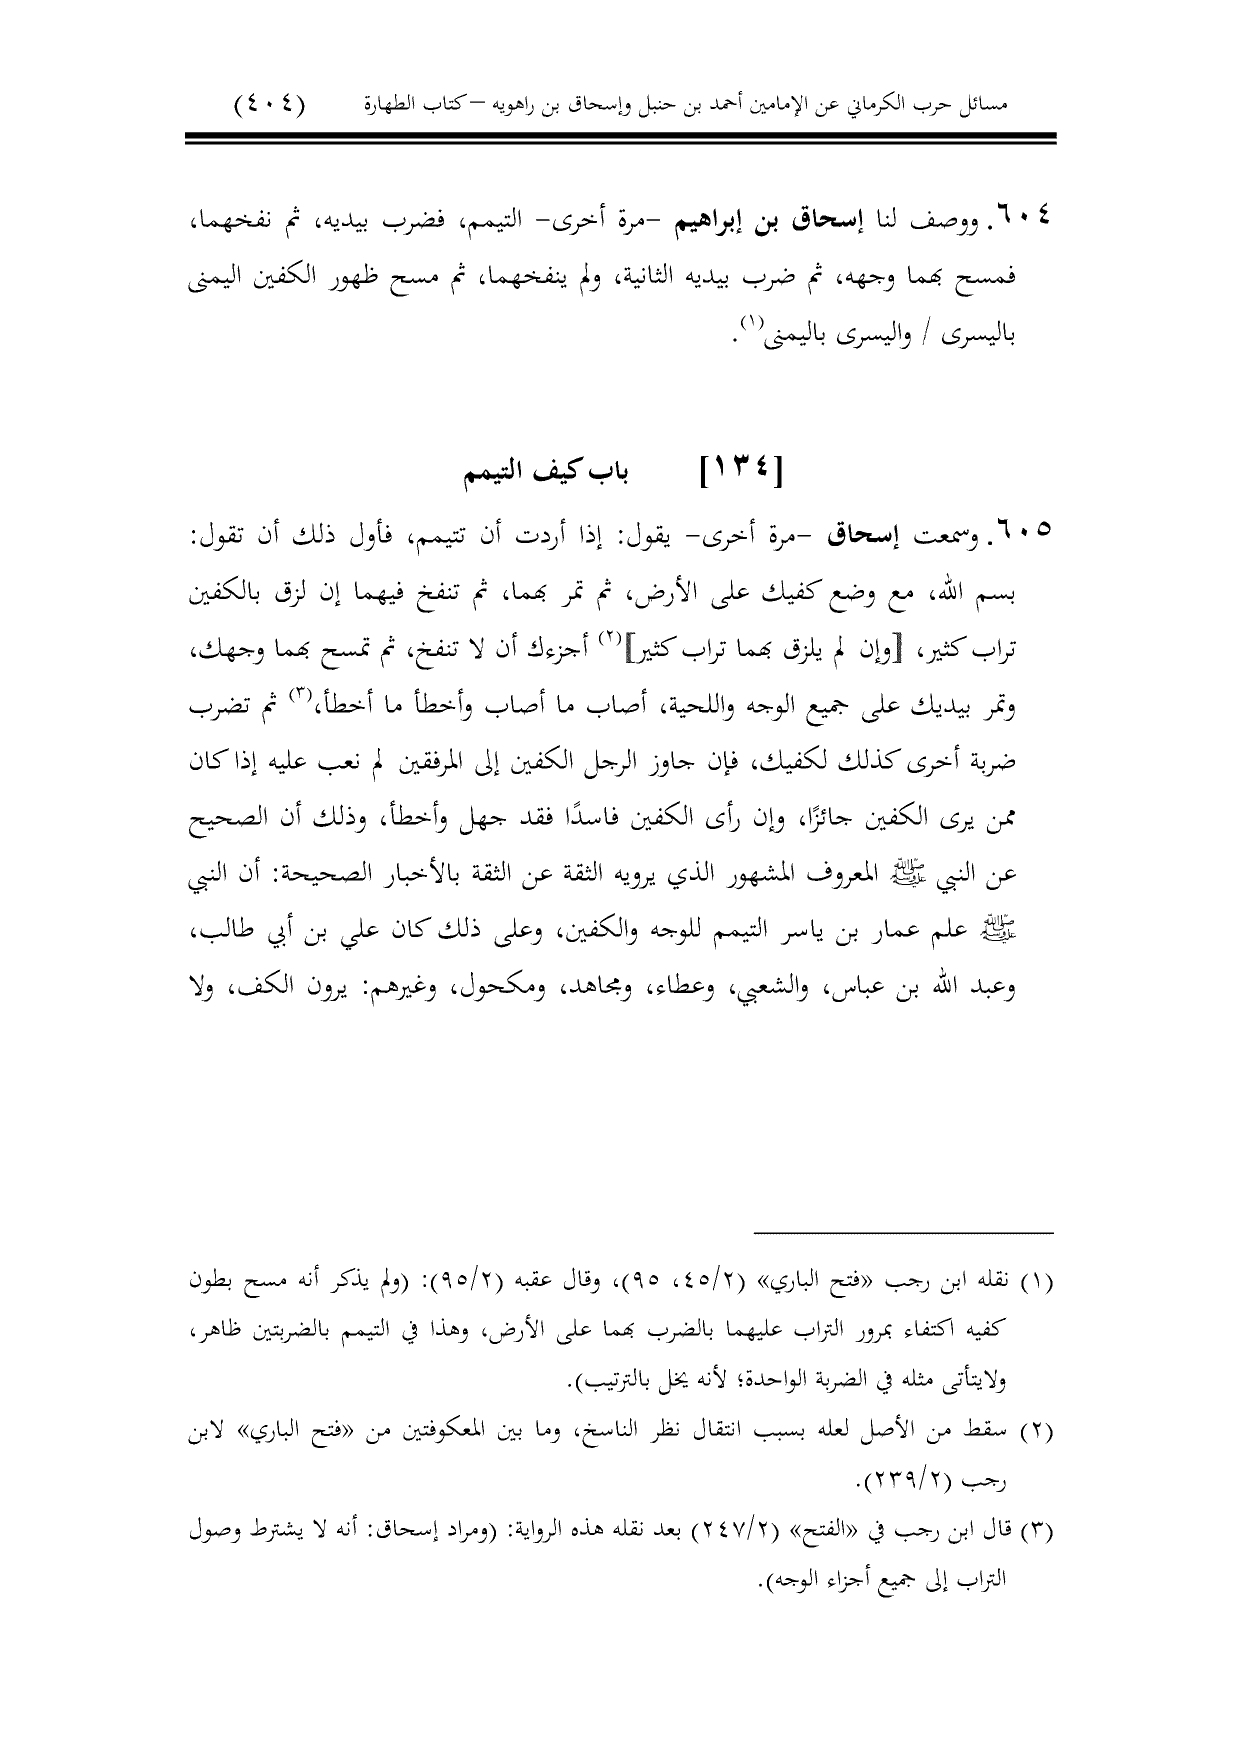 مسائل حرب الكرماني عن الإمامين أحمد بن حنبل وإسحاق بن راهويه – كتاب الطهارة (٤٠٤)
٦٠٤. ووصف لنا إسحاق بن إبراهيم -مرة أخرى- التيمم، فضرب بيديه، ثم نفخهما،
فمسح بهما وجهه، ثم ضرب بيديه الثانية، ولم ينفخهما، ثم مسح ظهور الكفين اليمنى
باليسرى / واليسرى باليمنى(١).
[١٣٤] باب كيف التيمم
٦٠٥. وسمعت إسحاق -مرة أخرى- يقول: إذا أردت أن تتيمم، فأول ذلك أن تقول:
بسم الله، مع وضع كفيك على الأرض، ثم تمر بهما، ثم تنفخ فيهما إن لزق بالكفين
تراب كثير، [وإن لم يلزق بهما تراب كثير](٢) أجزءك أن لا تنفخ، ثم تمسح بهما وجهك،
وتمر بيديك على جميع الوجه واللحية، أصاب ما أصاب وأخطأ ما أخطأ،(٣) ثم تضرب
ضربة أخرى كذلك لكفيك، فإن جاوز الرجل الكفين إلى المرفقين لم نعب عليه إذا كان
ممن يرى الكفين جائزًا، وإن رأى الكفين فاسدًا فقد جهل وأخطأ، وذلك أن الصحيح
عن النبي ﷺ المعروف المشهور الذي يرويه الثقة عن الثقة بالأخبار الصحيحة: أن النبي
ﷺ علم عمار بن ياسر التيمم للوجه والكفين، وعلى ذلك كان علي بن أبي طالب،
وعبد الله بن عباس، والشعبي، وعطاء، ومجاهد، ومكحول، وغيرهم: يرون الكف، ولا
(١) نقله ابن رجب «فتح الباري» (٤٥/٢، ٩٥)، وقال عقبه (٩٥/٢): (ولم يذكر أنه مسح بطون
كفيه اكتفاء بمرور التراب عليهما بالضرب بهما على الأرض، وهذا في التيمم بالضربتين ظاهر،
ولايتأتى مثله في الضربة الواحدة؛ لأنه يخل بالترتيب).
(٢) سقط من الأصل لعله بسبب انتقال نظر الناسخ، وما بين المعكوفتين من «فتح الباري» لابن
رجب (٢٣٩/٢).
(٣) قال ابن رجب في «الفتح» (٢٤٧/٢) بعد نقله هذه الرواية: (ومراد إسحاق: أنه لا يشترط وصول
التراب إلى جميع أجزاء الوجه).